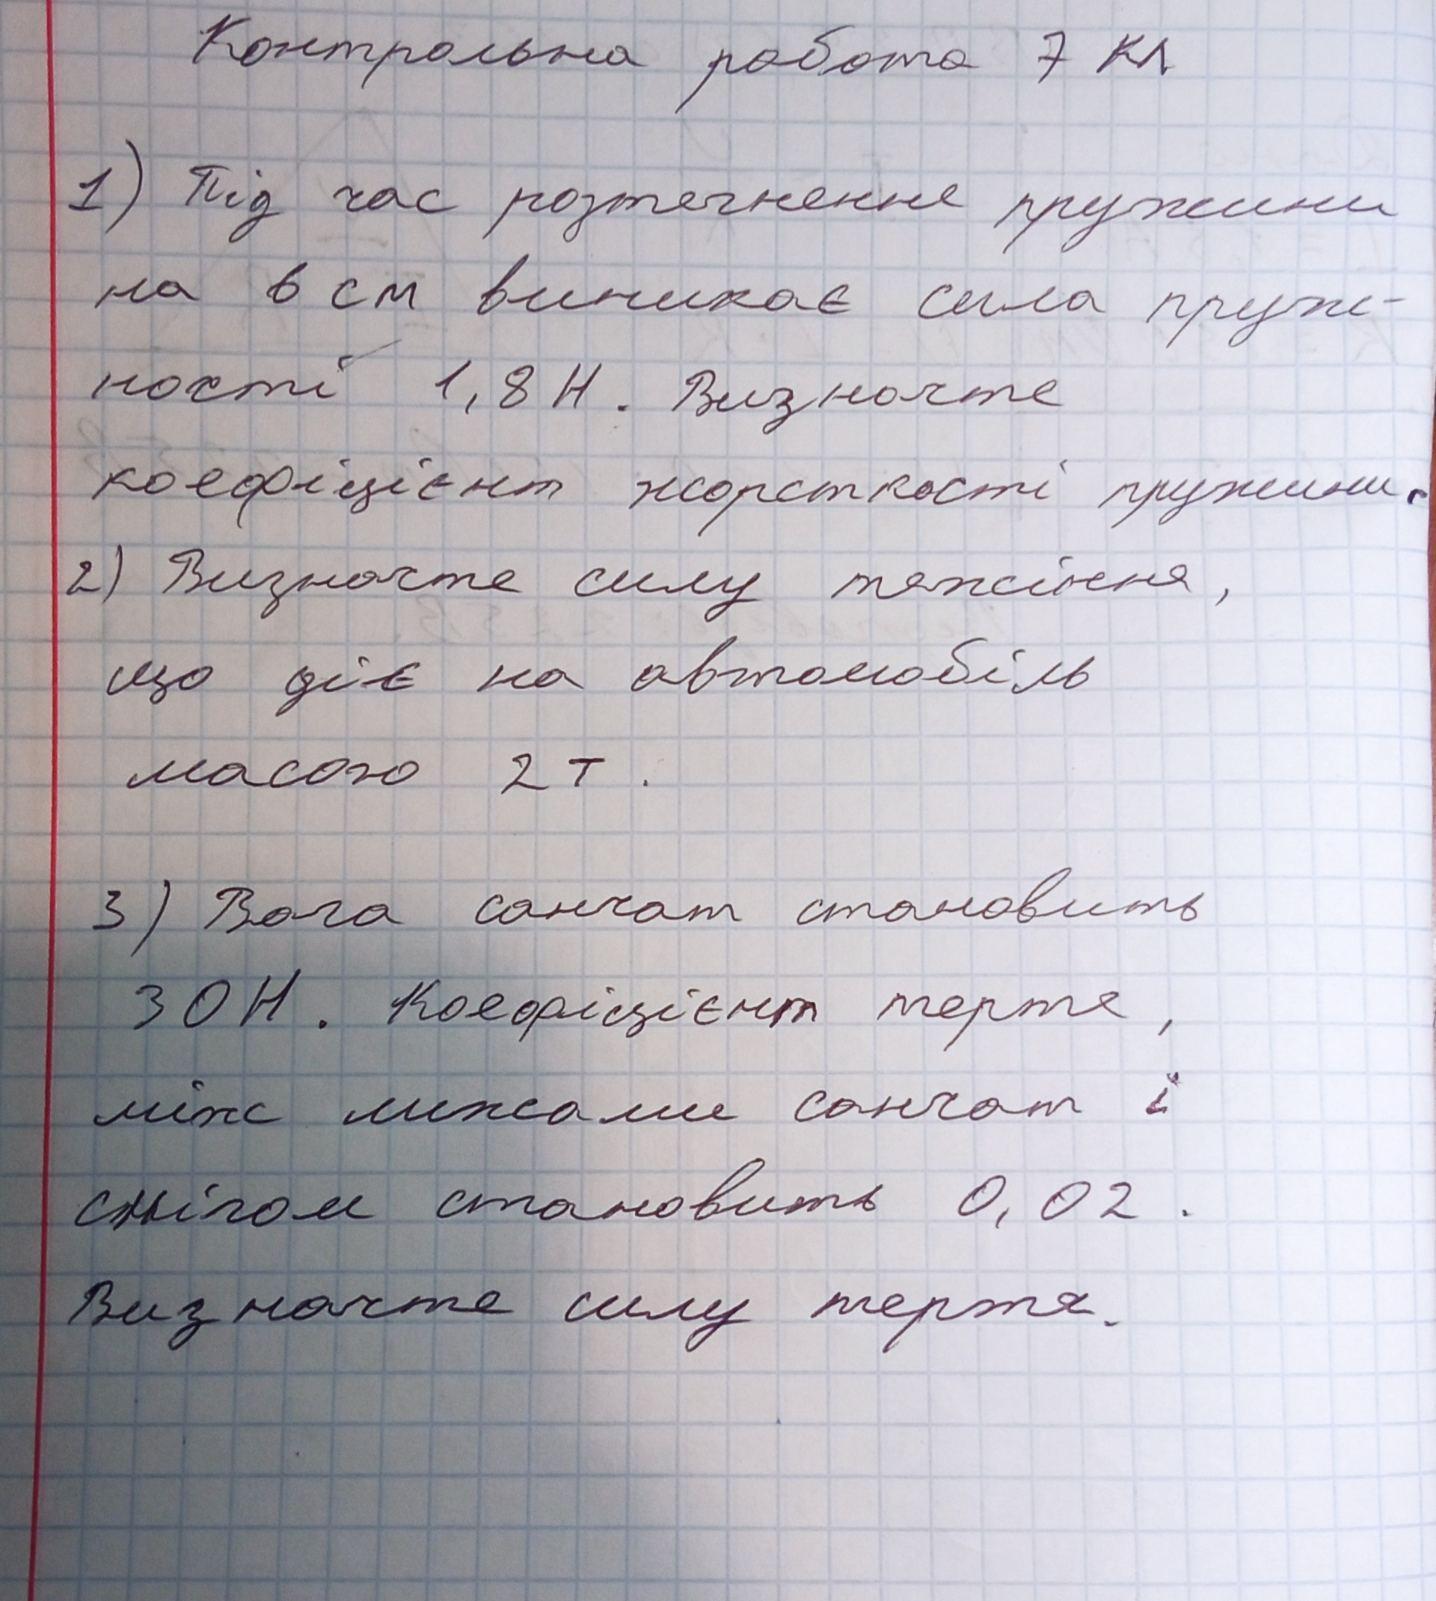 Контрольна робота 7 кл
1) Під час розтягнення пружини
на 6 см виникає сила пруж-
ності 1,8 Н. Визначте
коефіцієнт жорсткості пружини.
2) Визначте силу тяжіння,
що діє на автомобіль
масою 2 т.
3) Вага санчат становить
30 Н. Коефіцієнт тертя,
між лижами санчат і
снігом становить 0,02.
Визначте силу тертя.